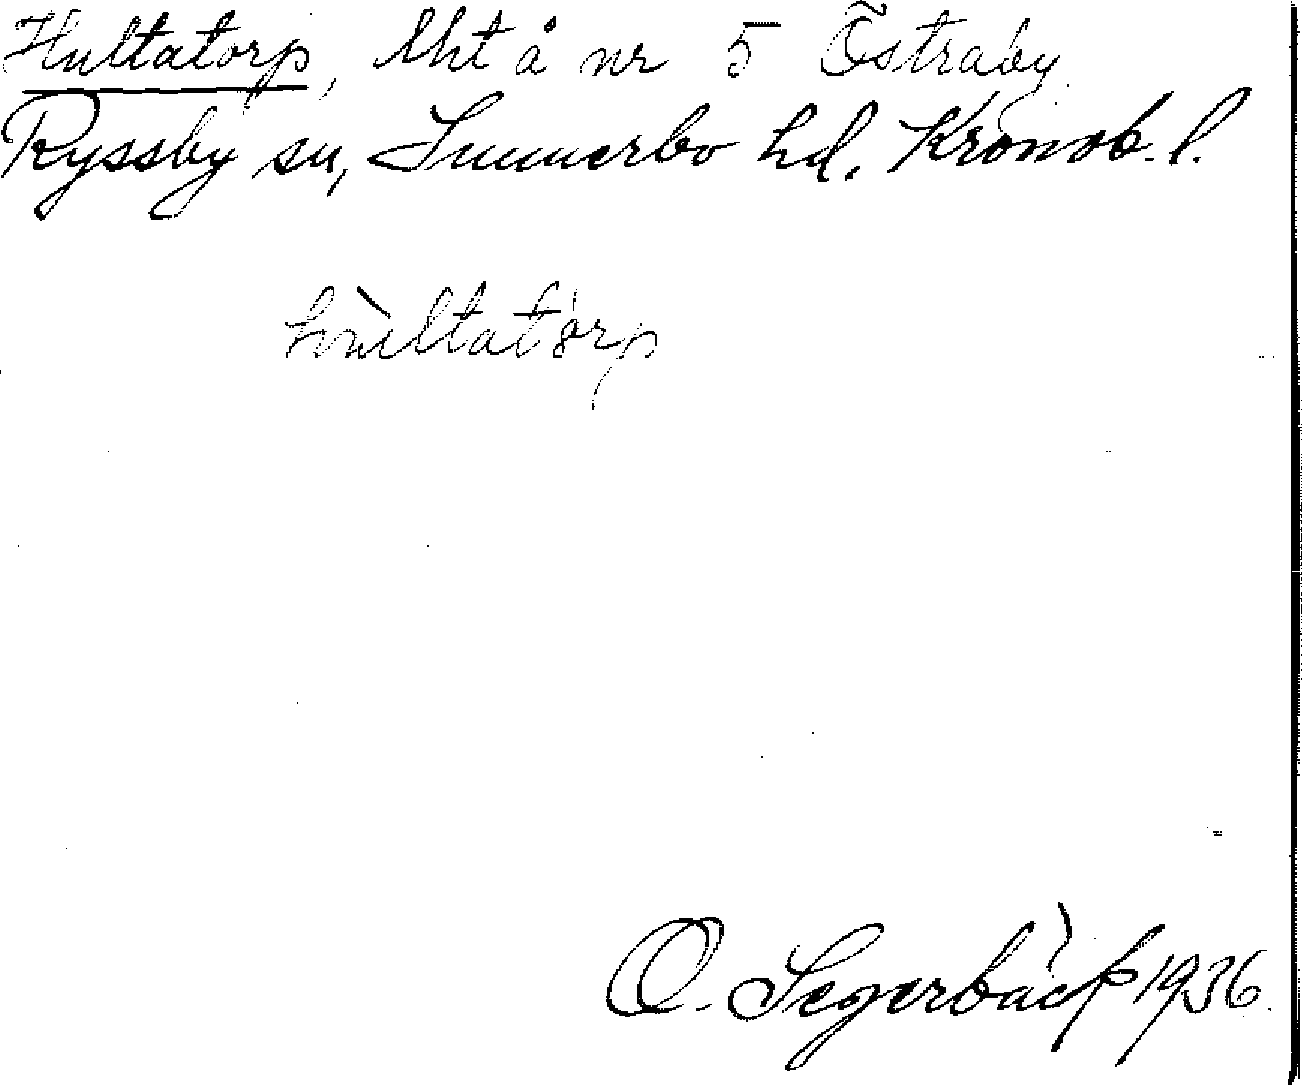 Hultatorp, lht å nr 5 Östraby
Ryssby sn, Sunnerbo hd. Kronob. l.
hùltatórp
O. Segerbäck 1936.